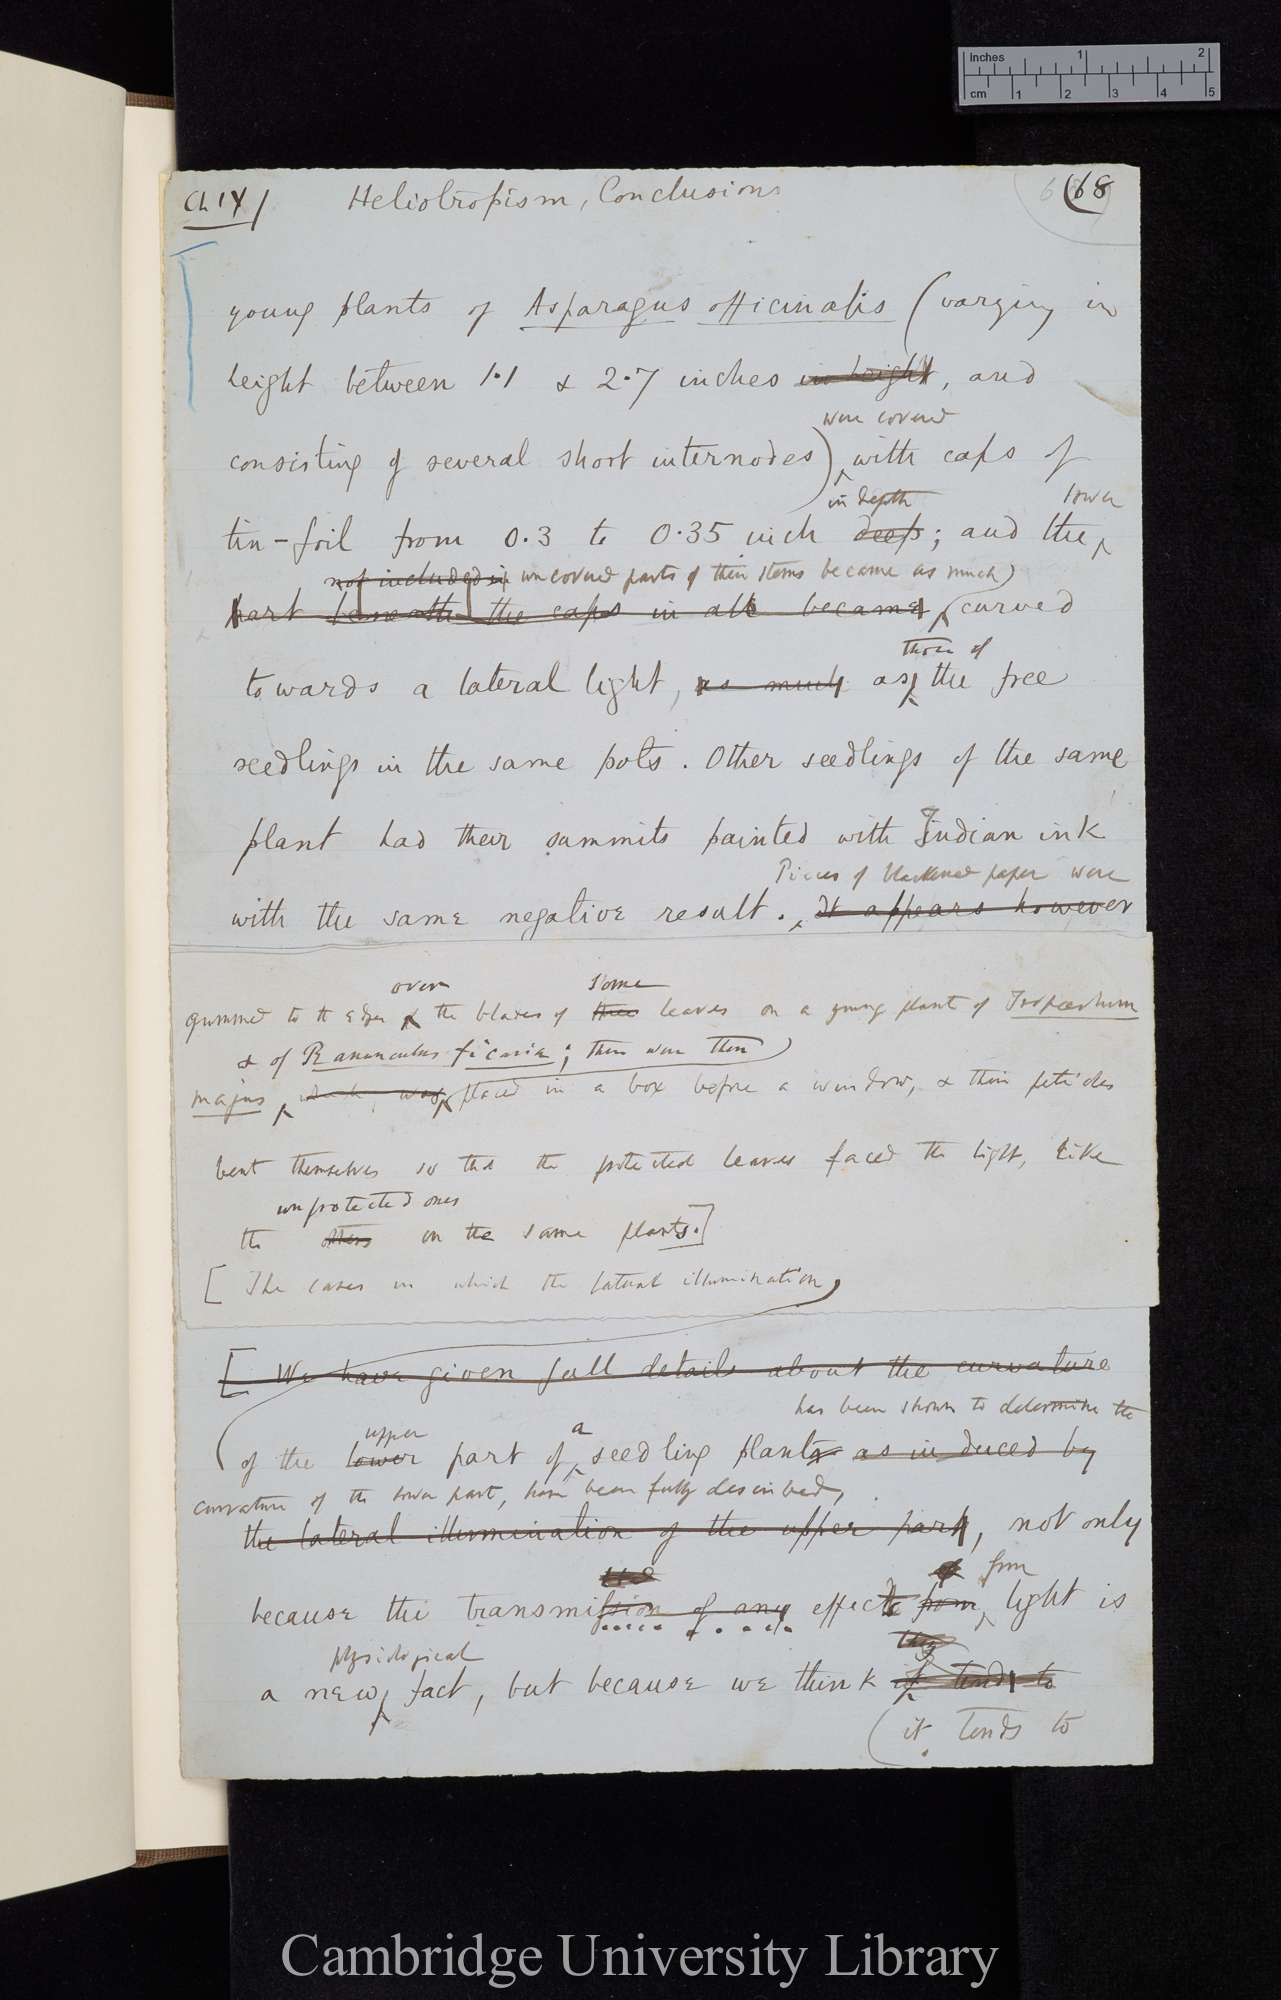 Inches 1 2
cm 1 2 3 4 5
Ch IX
Heliotropism, Conclusions
68
young plants of Asparagus officinalis (varying in
height between 1.1 & 2.7 inches in height, and
were covered
consisting of several short internodes) with caps of
in depth lower
tin-foil from 0.3 to 0.35 inch deep; and the
not included in uncovered parts of their stems became as much)
part beneath the caps in all became curved
those of
towards a lateral light, as much as the free
seedlings in the same pots. Other seedlings of the same
plant had their summits painted with Indian ink
Pieces of blackened paper were
with the same negative result. It appears however
over some
gummed to the edges & the blades of three leaves on a young plant of Tropaeolum
& of Ranunculus ficaria; these were then)
majus, which was placed in a box before a window, & their petioles
bent themselves so that the protected leaves faced the light, like
unprotected ones
the others on the same plants.]
[The cases in which the lateral illumination
[We have given full details about the curvature
has been shown to determine the
upper a
of the lower part of seedling plants as induced by
curvature of the lower part, have been fully described,
the lateral illumination of the upper part, not only
from
because the transmission of any effect from light is
they
physiological
a new fact, but because we think it tends to
(it tends to
Cambridge University Library